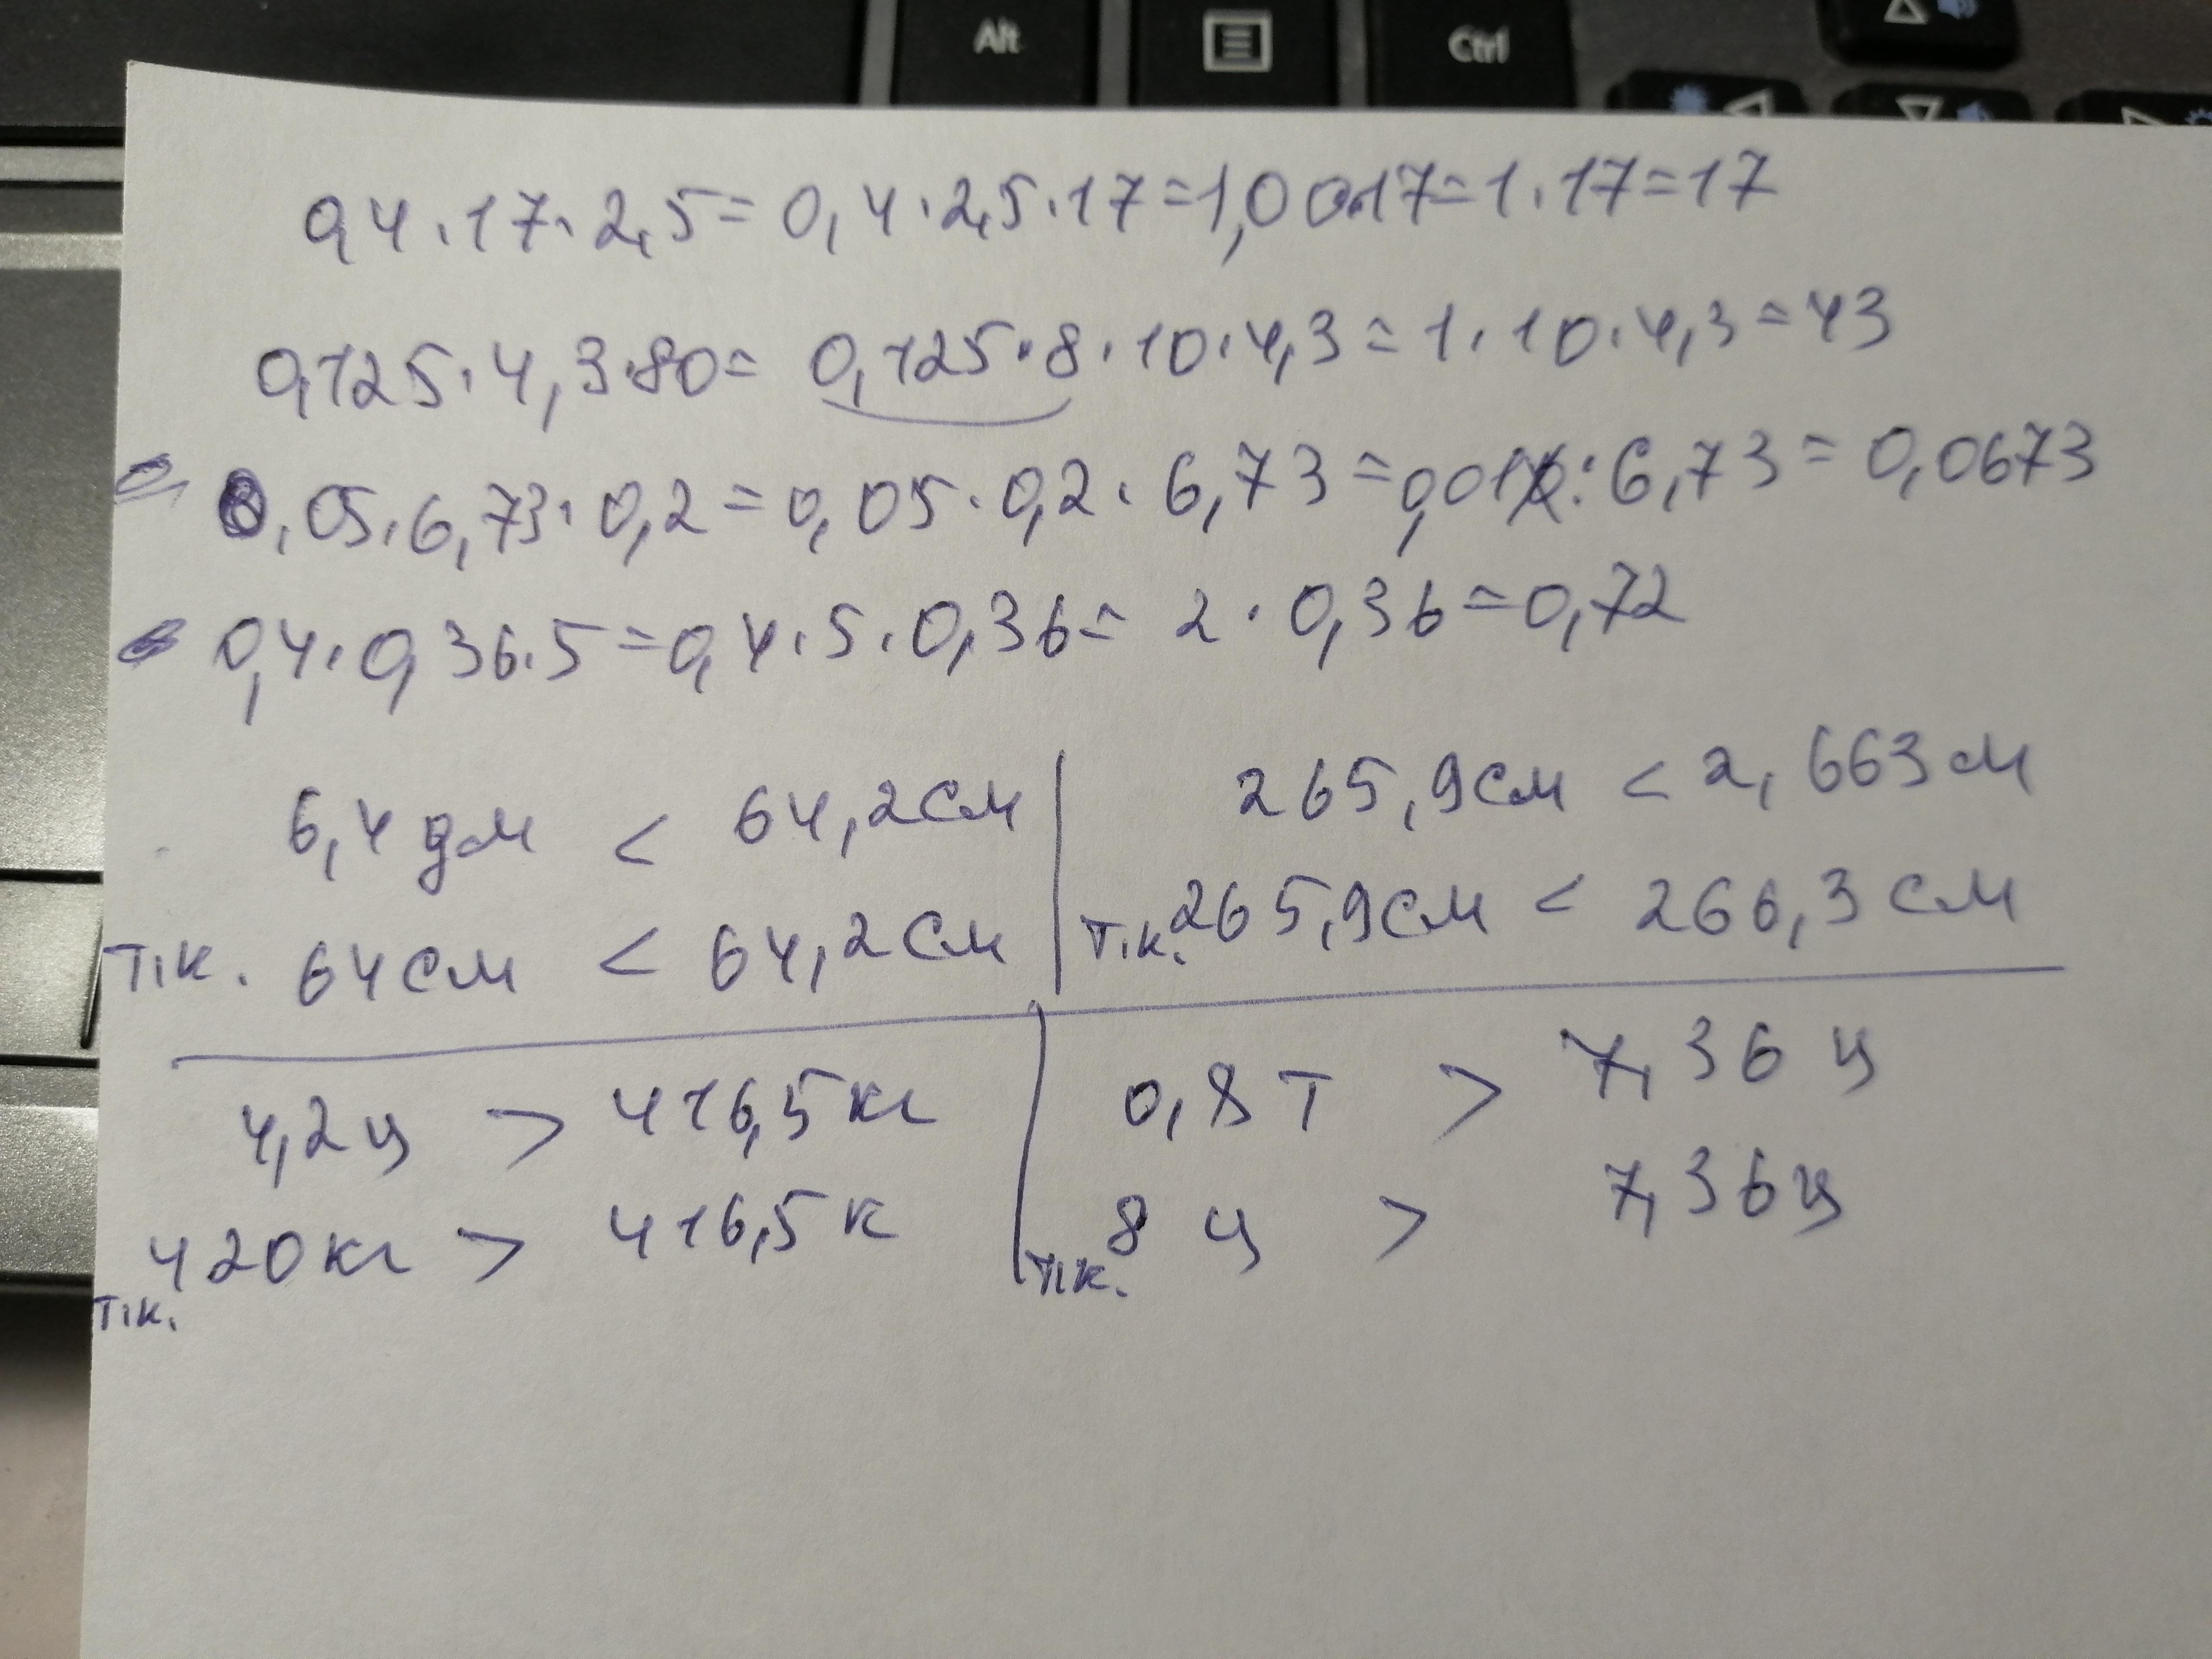 Alt
Ctrl
0,4·17·2,5=0,4·2,5·17=1,00·17=1·17=17
0,125·4,3·80=0,125·8·10·4,3=1·10·4,3=43
0,05·6,73·0,2=0,05·0,2·6,73=0,01:6,73=0,0673
0,4·0,36·5=0,4·5·0,36=2·0,36=0,72
6,4 дм < 64,2 см
т.к. 64 см < 64,2 см
265,9 см < 2,663 м
т.к. 265,9 см < 266,3 см
4,2 ц > 416,5 кг
420 кг > 416,5 к
т.к.
0,8 т > 7,36 ц
т.к. 8 ц > 7,36 ц